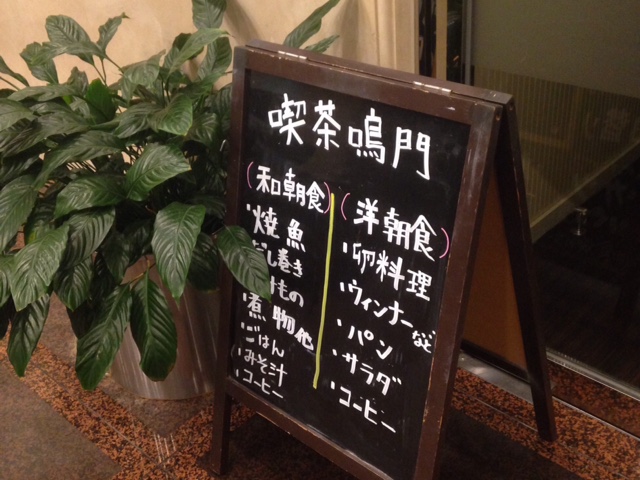 喫茶鳴門
(和朝食)
・焼魚
だし巻き
けもの
・煮物他
・ごはん
・みそ汁
・コーヒー
(洋朝食)
・卵料理
・ウィンナーなど
・パン
・サラダ
・コーヒー